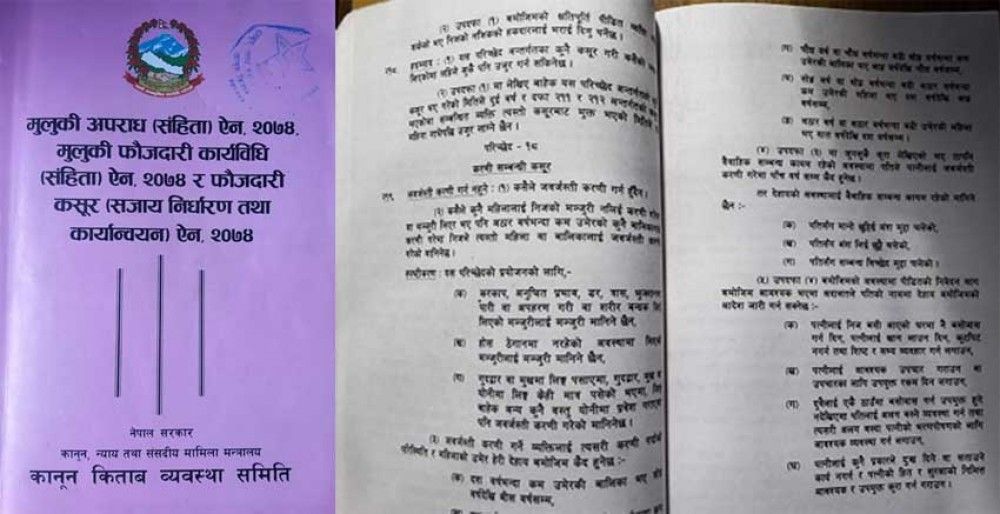 मुलुकी अपराध (संहिता) ऐन, २०७४,
मुलुकी फौजदारी कार्यविधि
(संहिता) ऐन, २०७४ र फौजदारी
कसूर (सजाय निर्धारण तथा
कार्यान्वयन) ऐन, २०७४
नेपाल सरकार
कानून, न्याय तथा संसदीय मामिला मन्त्रालय
कानून किताब व्यवस्था समिति
(२) उपदफा (१) बमोजिमको क्षतिपूर्ति पीडित
(१) यस परिच्छेद अन्तर्गतका कुनै कसूर गरी
(२) उपदफा (१) मा लेखिए बाहेक यस परिच्छेद अन्तर्गतका
कसूर भए गरेको मितिले दुई वर्ष र दफा २११ र २१२ अन्तर्गतको
परिच्छेद - १८
करणी सम्बन्धी कसूर
जबर्जस्ती करणी गर्न नहुने : (१) कसैले जबर्जस्ती करणी गर्न हुँदैन।
(२) कसैले कुनै महिलालाई निजको मञ्जुरी नलिई करणी
वा मञ्जुरी लिएर भए पनि अठार वर्षभन्दा कम उमेरको कुनै बालिकालाई
करणी गरेमा निजले त्यस्तो महिला वा बालिकालाई जबर्जस्ती करणी
गरेको मानिनेछ।
स्पष्टीकरण : यस परिच्छेदको प्रयोजनको लागि,-
(क) करकाप, अनुचित प्रभाव, डर, त्रास,
पारी वा अपहरण गरी वा शरीर बन्धक
लिएको मञ्जुरीलाई मञ्जुरी मानिने छैन,
(ख) होस ठेगानमा नरहेको अवस्थामा लिएको
मञ्जुरीलाई मञ्जुरी मानिने छैन,
(ग) गुदद्वार वा मुखमा लिङ्ग पसाएमा, गुदद्वार, मुख वा
योनीमा लिङ्ग केही मात्र पसेको भएमा, लिङ्ग
बाहेक अन्य कुनै वस्तु योनीमा प्रवेश गराएमा
पनि जबर्जस्ती करणी गरेको मानिनेछ।
(३) जबर्जस्ती करणी गर्ने व्यक्तिलाई त्यसरी करणी गर्दाको
परिस्थिति र महिलाको उमेर हेरी देहाय बमोजिम कैद हुनेछ :-
(क) दश वर्षभन्दा कम उमेरकी बालिका भए सोह्र
वर्षदेखि बीस वर्षसम्म,
(ग) चौध वर्ष वा चौध वर्षभन्दा बढी सोह्र वर्षभन्दा कम
(घ) सोह्र वर्ष वा सोह्र वर्षभन्दा बढी अठार वर्षभन्दा
कम उमेरकी महिला भए दश वर्षदेखि बाह्र
वर्षसम्म,
(ङ) अठार वर्ष वा अठार वर्षभन्दा बढी उमेरकी महिला
भए सात वर्षदेखि दश वर्षसम्म।
(४) उपदफा (३) मा जुनसुकै कुरा लेखिएको भए तापनि
वैवाहिक सम्बन्ध कायम रहेको अवस्थामा पतिले पत्नीलाई जबर्जस्ती
करणी गरेमा पाँच वर्ष सम्म कैद हुनेछ।
तर देहायको अवस्थालाई वैवाहिक सम्बन्ध कायम रहेको मानिने
छैन :-
(क) पतिसँग मानो छुट्टिई अंश मुद्दा चलेको,
(ख) पतिसँग अंश लिई छुट्टै बसेको,
(ग) पतिसँग सम्बन्ध विच्छेद मुद्दा चलेको।
(५) उपदफा (४) बमोजिमको अवस्थामा पीडितको निवेदन माग
बमोजिम आवश्यक भएमा अदालतले पतिको नाममा देहाय बमोजिमको
आदेश जारी गर्न सक्नेछ :-
(क) पत्नीलाई निज बसी आएको घरमा नै बसोबास
गर्न दिन, पत्नीलाई खान लाउन दिन, कुटपिट
नगर्न तथा शिष्ट र सभ्य व्यवहार गर्न लगाउन,
(ख) पत्नीलाई आवश्यक उपचार गराउन वा
उपचारका लागि उपयुक्त रकम दिन लगाउन,
(ग) दुबैलाई एकै ठाउँमा बसोबास गर्न उपयुक्त हुने
नदेखिएमा पतिलाई अलग बस्ने व्यवस्था गर्न तथा
त्यसरी अलग बस्दा पत्नीको भरणपोषणको लागि
आवश्यक व्यवस्था गर्न लगाउन,
(घ) पत्नीलाई कुनै प्रकारले दुःख दिने वा सताउने
कार्य नगर्न र पत्नीको हित र सुरक्षाको निमित्त
आवश्यक र उपयुक्त कुरा गर्न गराउन।